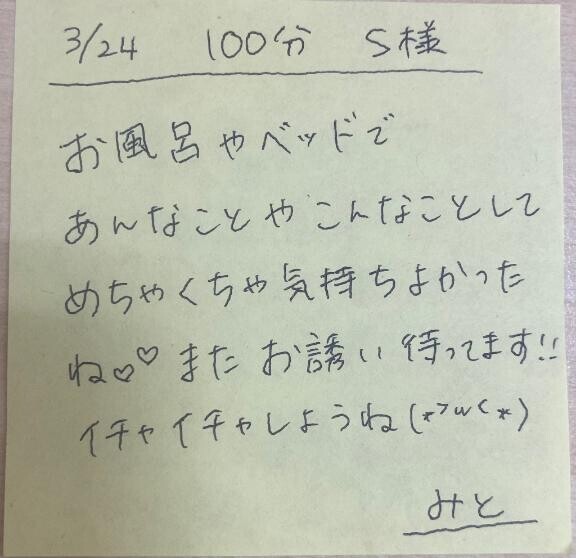 3/24 100分 S様
お風呂やベッドで
あんなことやこんなことして
めちゃくちゃ気持ちよかった
ね♡♡ またお誘い待ってます!!
イチャイチャしようね(*>w<*)
みと